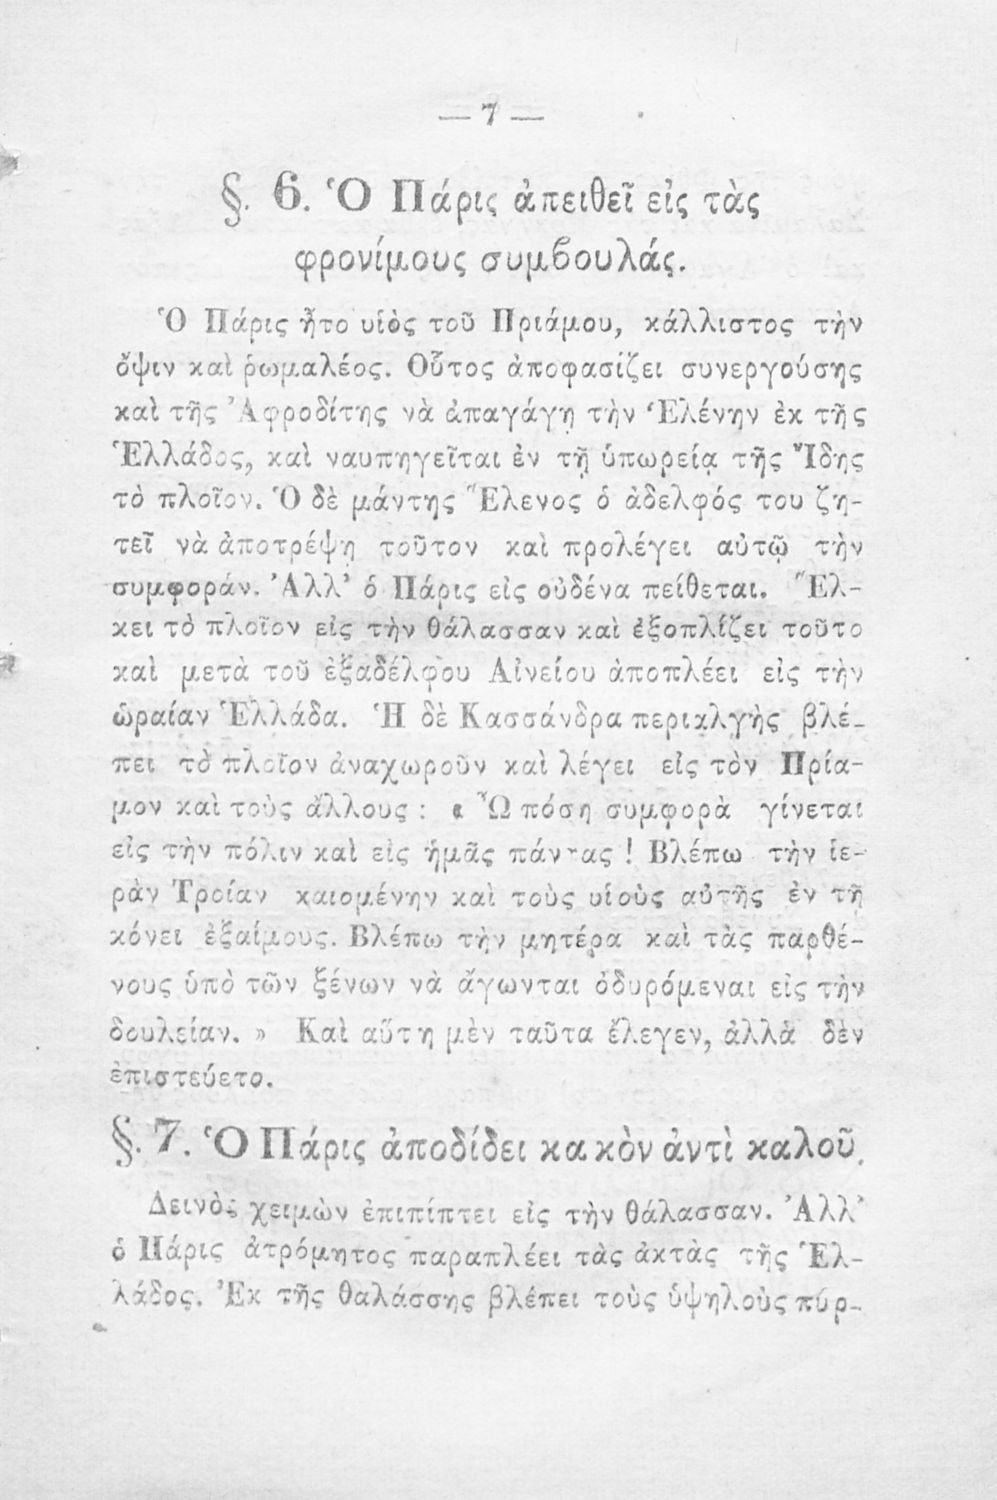 — 7 —
§. 6. Ὁ Πάρις ἀπειθεῖ εἰς τὰς
φρονίμους συμβουλάς.
Ὁ Πάρις ἦτο υἱὸς τοῦ Πριάμου, κάλλιστος τὴν
ὄψιν καὶ ῥωμαλέος. Οὗτος ἀποφασίζει συνεργούσης
καὶ τῆς Ἀφροδίτης νὰ ἀπαγάγῃ τὴν Ἑλένην ἐκ τῆς
Ἑλλάδος, καὶ ναυπηγεῖται ἐν τῇ ὑπωρείᾳ τῆς Ἴδης
τὸ πλοῖον. Ὁ δὲ μάντης Ἕλενος ὁ ἀδελφός του ζη-
τεῖ νὰ ἀποτρέψῃ τοῦτον καὶ προλέγει αὐτῷ τὴν
συμφοράν. Ἀλλ’ ὁ Πάρις εἰς οὐδένα πείθεται. Ἕλ-
κει τὸ πλοῖον εἰς τὴν θάλασσαν καὶ ἐξοπλίζει τοῦτο
καὶ μετὰ τοῦ ἐξαδέλφου Αἰνείου ἀποπλέει εἰς τὴν
ὡραίαν Ἑλλάδα. Ἡ δὲ Κασσάνδρα περιαλγὴς βλέ-
πει τὸ πλοῖον ἀναχωροῦν καὶ λέγει εἰς τὸν Πρία-
μον καὶ τοὺς ἄλλους : « Ὢ πόση συμφορὰ γίνεται
εἰς τὴν πόλιν καὶ εἰς ἡμᾶς πάντας ! Βλέπω τὴν ἱε-
ρὰν Τροίαν καιομένην καὶ τοὺς υἱοὺς αὐτῆς ἐν τῇ
κόνει ἐξαίμους. Βλέπω τὴν μητέρα καὶ τὰς παρθέ-
νους ὑπὸ τῶν ξένων νὰ ἄγωνται ὀδυρόμεναι εἰς τὴν
δουλείαν. » Καὶ αὕτη μὲν ταῦτα ἔλεγεν, ἀλλὰ δὲν
ἐπιστεύετο.
§. 7. Ὁ Πάρις ἀποδίδει κακὸν ἀντὶ καλοῦ.
Δεινὸς χειμὼν ἐπιπίπτει εἰς τὴν θάλασσαν. Ἀλλ’
ὁ Πάρις ἀτρόμητος παραπλέει τὰς ἀκτὰς τῆς Ἑλ-
λάδος. Ἐκ τῆς θαλάσσης βλέπει τοὺς ὑψηλοὺς πύρ-